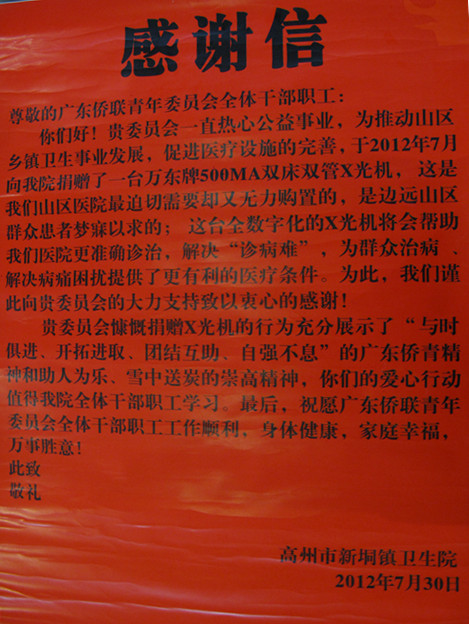 感谢信
尊敬的广东侨联青年委员会全体干部职工：
你们好！贵委员会一直热心公益事业，为推动山区
乡镇卫生事业发展，促进医疗设施的完善，于2012年7月
向我院捐赠了一台万东牌500MA双床双管X光机，这是
我们山区医院最迫切需要却又无力购置的，是边远山区
群众患者梦寐以求的；这台全数字化的X光机将会帮助
我们医院更准确诊治，解决“诊病难”，为群众治病、
解决病痛困扰提供了更有利的医疗条件。为此，我们谨
此向贵委员会的大力支持致以衷心的感谢！
贵委员会慷慨捐赠X光机的行为充分展示了“与时
俱进、开拓进取、团结互助、自强不息”的广东侨青精
神和助人为乐、雪中送炭的崇高精神，你们的爱心行动
值得我院全体干部职工学习。最后，祝愿广东侨联青年
委员会全体干部职工工作顺利，身体健康，家庭幸福，
万事胜意！
此致
敬礼
高州市新垌镇卫生院
2012年7月30日